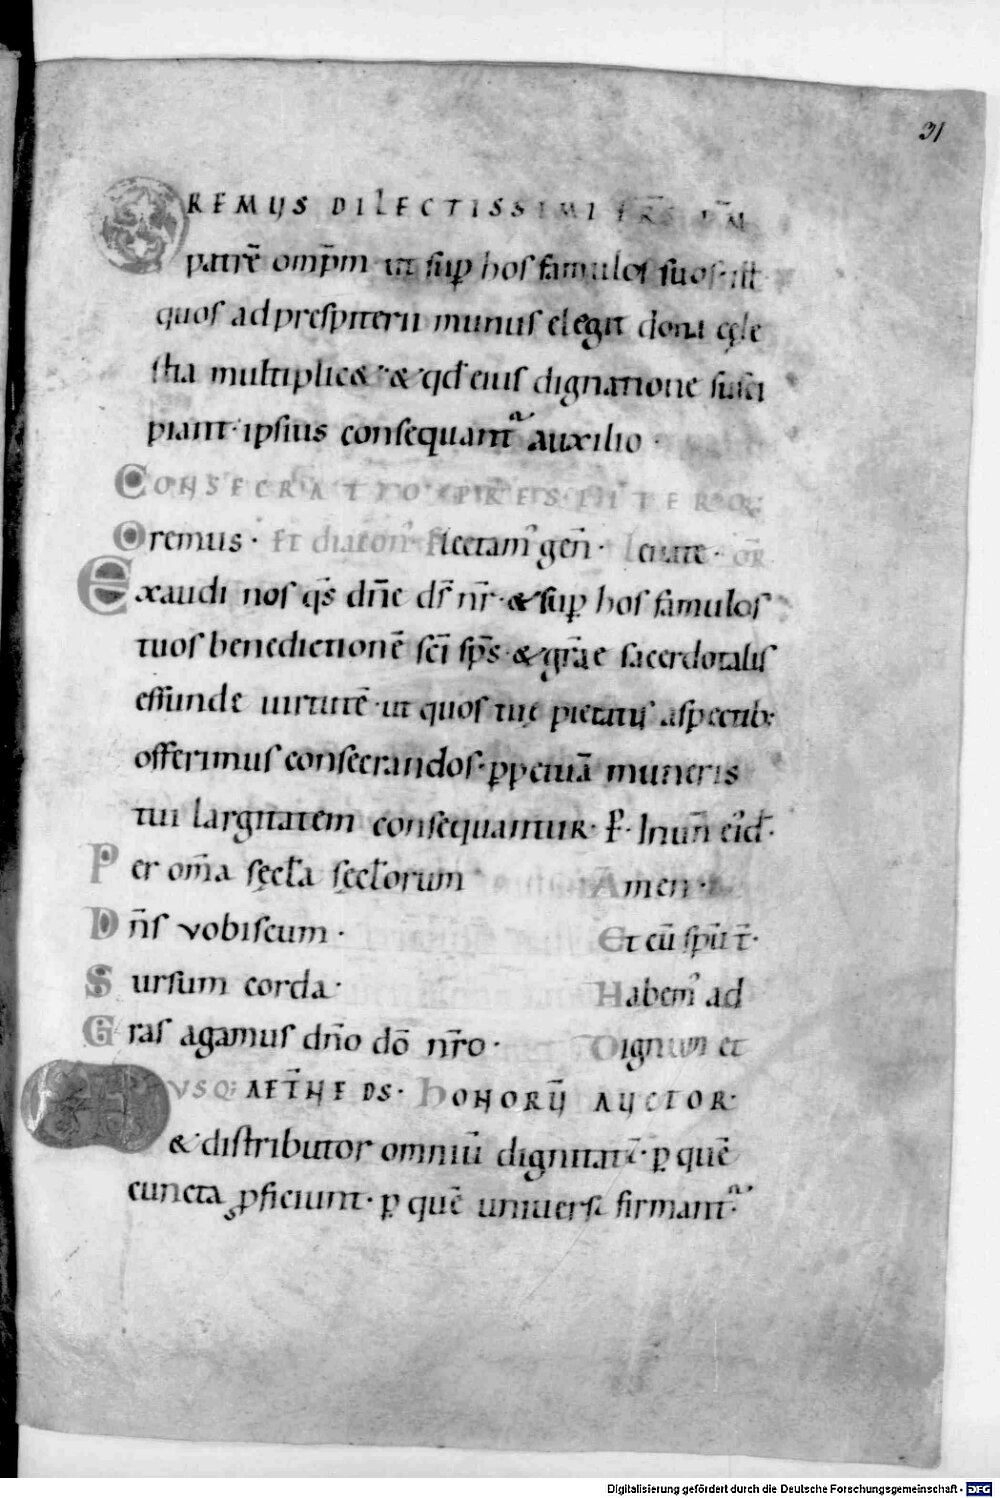 31
OREMUS DILECTISSIMI FR̄S D̄M
patrē omp̄m · ut suꝑ hos famulos suos · ill ·
quos ad prespiterii munus elegit dona cęle
stia multiplic& · & qđ eius dignatione susci
piant · ipsius consequant᷑ auxilio ·
CONSECRATIO
Oremus · Et diacon̄ · flectam᷒ geñ · Leuate · or̄
Exaudi nos q̄s dn̄e ds̄ nr̄ · & suꝑ hos famulos
tuos benedictionē sc̄i sp̄s · & gr̄ae sacerdotalis
effunde uirtutē · ut quos tuę pietatis aspectib;
offerimus consecrandos · ꝑpetuā muneris
tui largitatem consequantur · P̄ · In un̄ eiđ ·
Per om̄a sęcl̄a sęcl̄orum Amen ·
Dn̄s vobiscum · Et cū spū t̄ ·
Sursum corda · Habem᷒ ad
Gr̄as agamus dn̄o dō nr̄o · Dignum et
VSQ; AET̄NE DS · HONORŪ AUCTOR ·
& distributor omniū dignitatū · ꝑ quē
cuncta ꝓficiunt · ꝑ quē uniuersa firmant᷑ ·
Digitalisierung gefördert durch die Deutsche Forschungsgemeinschaft - DFG